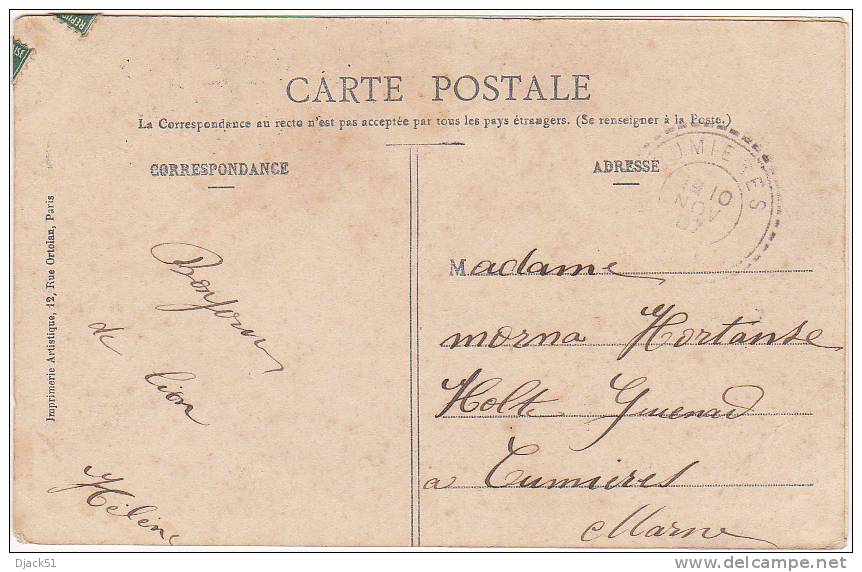 CARTE POSTALE
La Correspondance au recto n'est pas acceptée par tous les pays étrangers. (Se renseigner à la Poste.)
CORRESPONDANCE
Bonjour
de
lion
Hélène
Imprimerie Artistique, 12, Rue Ortolan, Paris
ADRESSE
UMIERES
10
NOV
07
Madame
morna Hortanse
Holte Guenad
a Cumières
Marne
Djack51
delcampe.net